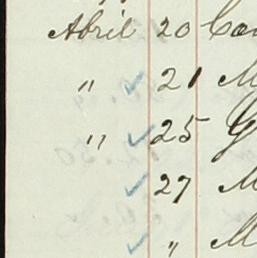 April 20 Con
" 21 M
" 25 G
27 M
" M